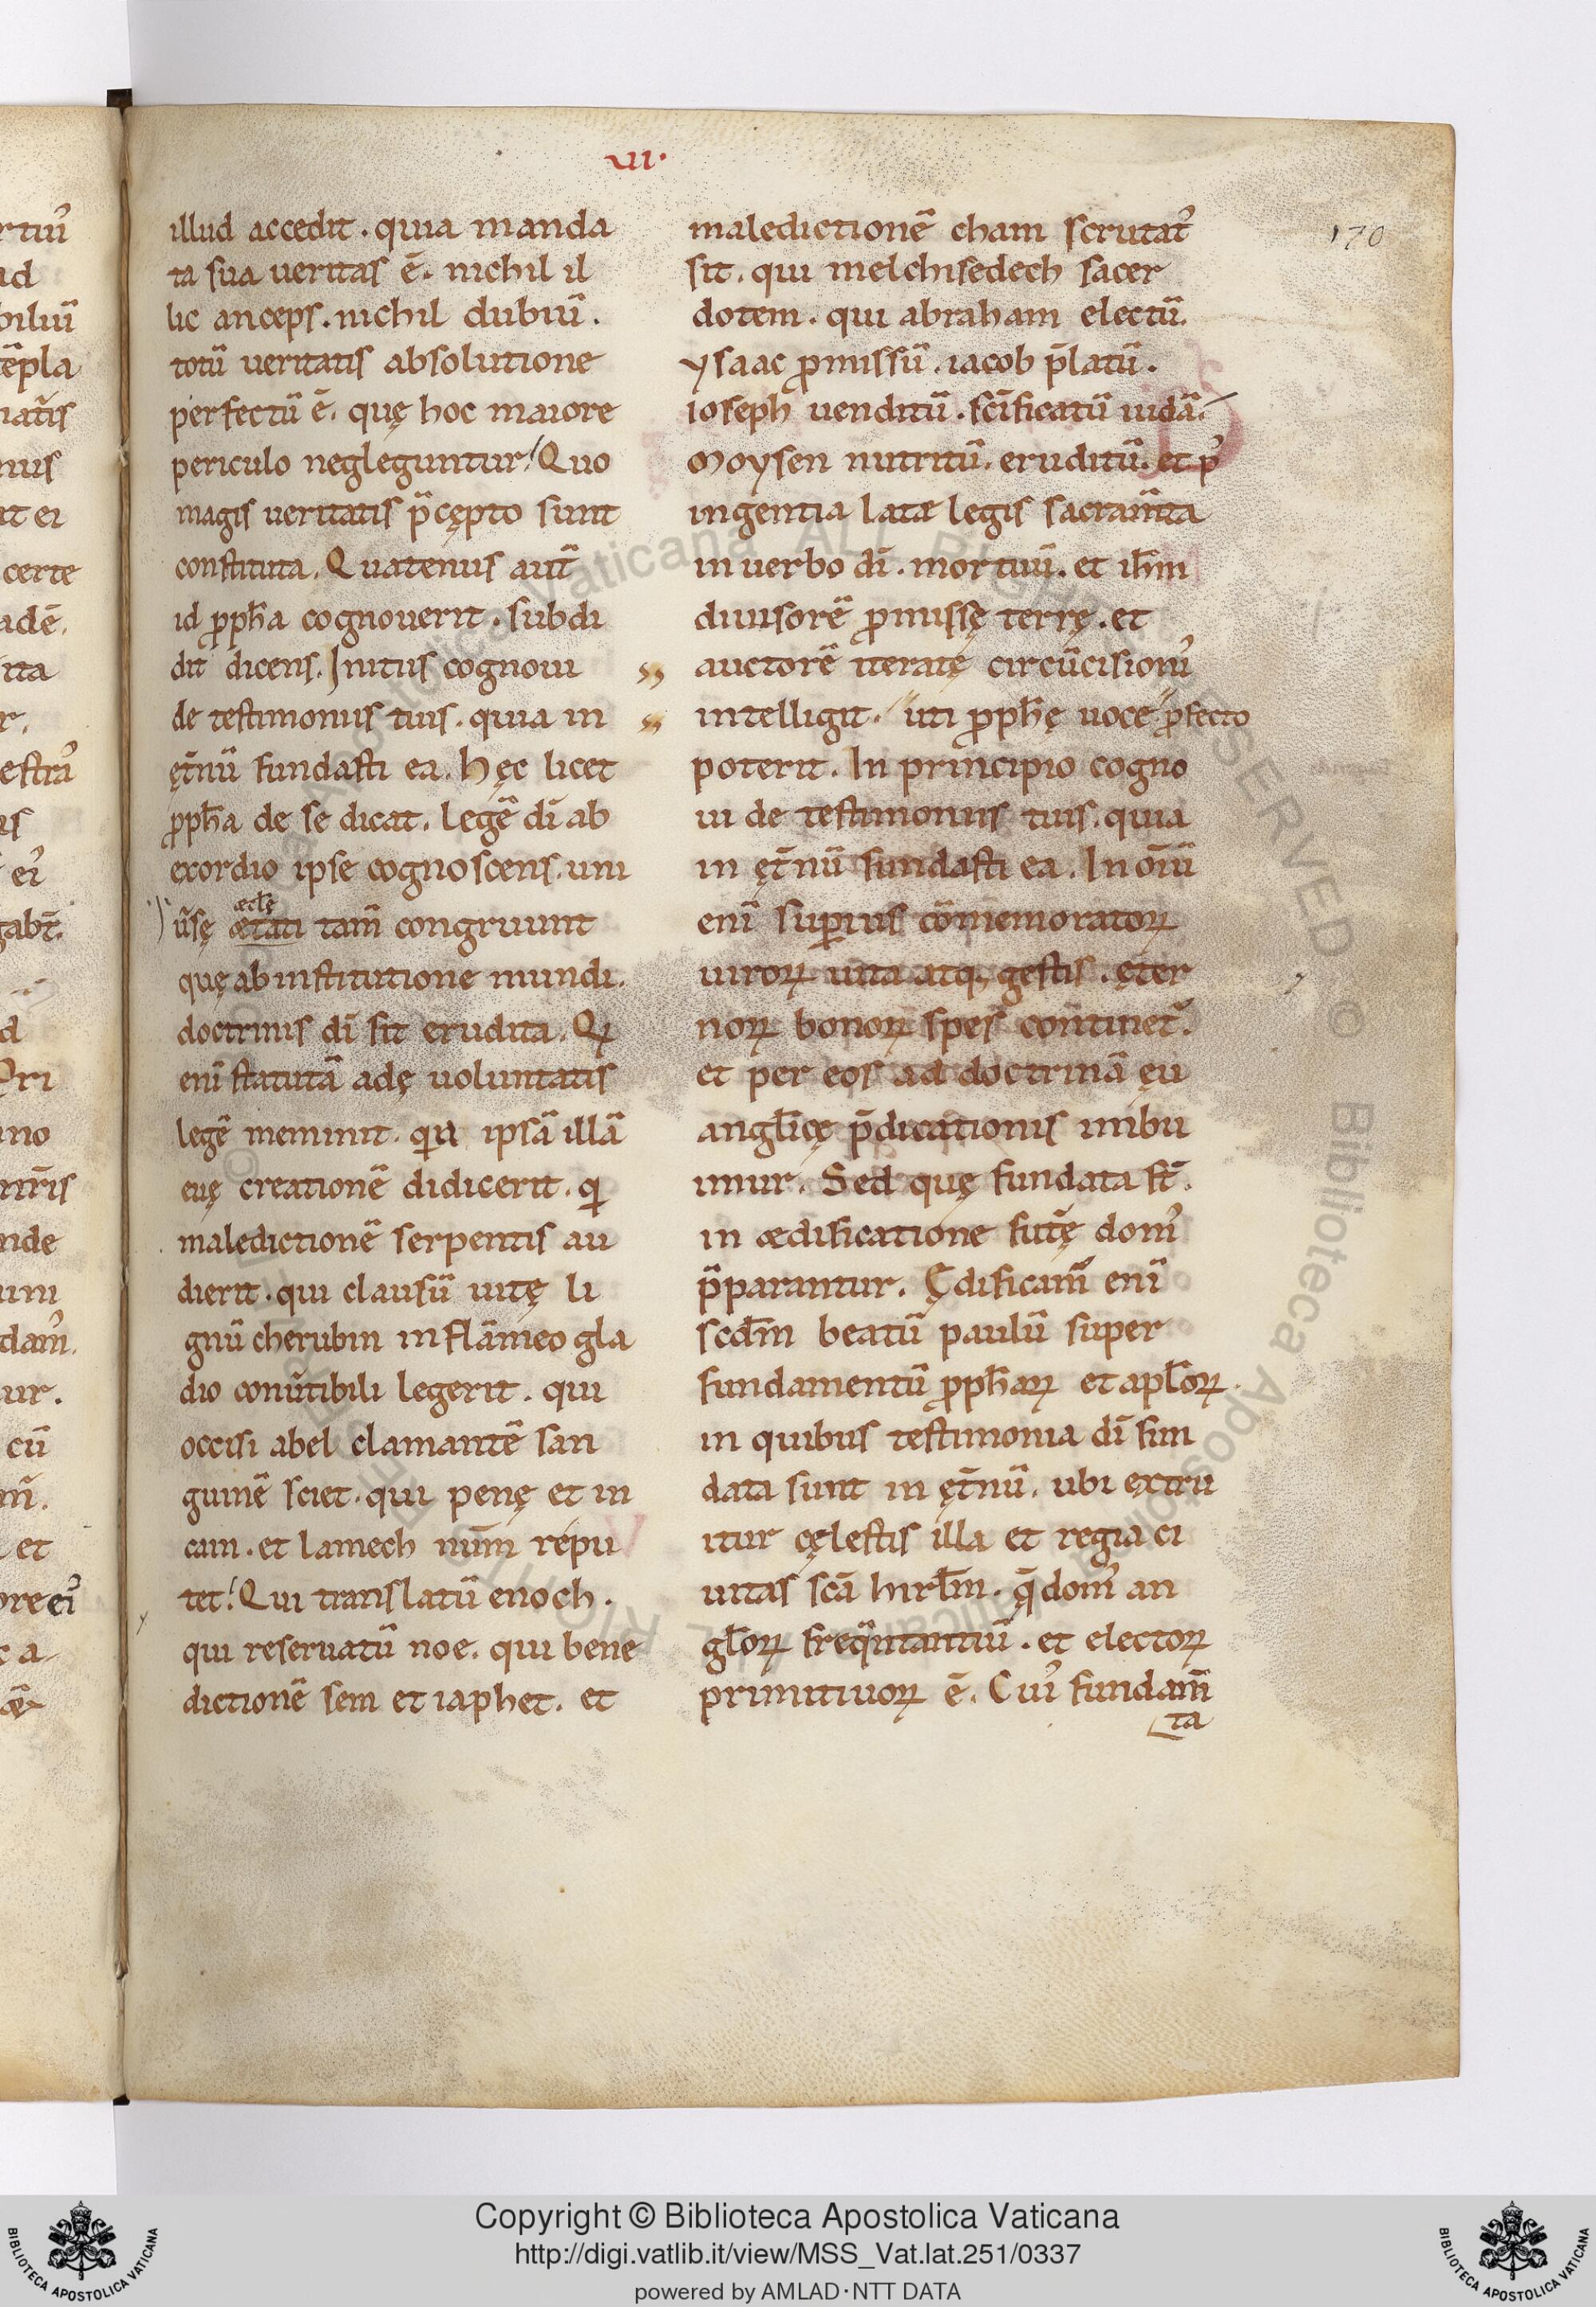 VII·
170
illud accedit . quia manda
ta sua ueritas ē. nichil il
lic anceps. nichil dubiū .
totū ueritatis absolutione
perfectū ē. quę hoc maiore
periculo negleguntur. Quo
magis ueritatis p̄cępto sunt
constituta. Quatenus aut̄
id ꝓph̄a cognouerit . subdi
dit dicens. Initiis cognoui
de testimoniis tuis . quia in
ęt̄nū fundasti ea. hęc licet
ꝓph̄a de se dicat. legē dī ab
exordio ipse cognoscens. uni
æcl̄ę
ūsę ætati tam̄ congruunt
quę ab institutione mundi.
doctrinis dī sit erudita. Qꝫ
enī statutā adę uoluntatis
legē meminit. qui ipsā illā
euę creationē didicerit . qi
maledictionē serpentis au
dierit . qui clausū uitę li
gnū cherubin in flāmeo gla
dio conūtibili legerit . qui
occisi abel clamantē san
guinē sciet . qui penę et in
cain . et lamech num̄ repu
tet. Qui translatū enoch .
qui reseruatū noe. qui bene
dictionē sem et iaphet. et
maledictionē cham scrutat᷒
sit . qui melchisedech sacer
dotem . qui abraham electū.
ysaac ꝓmissū . iacob p̄latū .
ioseph uenditū . sc̄ificatū iudā.
Moysen nutritū. eruditū. et p᷒
ingentia latæ legis sacram̄ta
in uerbo dī . mortuū. et ih̄m
diuisorē ꝓmissę terrę . et
auctorē iteratę circūcisionis᷒
intelligit . uti ꝓph̄ę uoce ꝓfecto
poterit. In principio cogno
ui de testimoniis tuis. quia
in ęt̄nū fundasti ea. In oīū
enī supius cōmemoratoꝝ
uiroꝝ uita atq; gestis . ęter
noꝝ bonoꝝ spes contineť.
et per eos ad doctrinā ęu
angl̄icę p̄dicationis imbu
imur. Sed quę fundata st̄.
in ædificatione futę̄ dom᷒
p̄parantur. Ędificam᷒ enī
scd̄m beatū paulū super
fundamentū ꝓph̄aꝝ et apl̄oꝝ.
in quibus testimonia dī fun
data sunt in ęt̄nū. ubi extru
itur cęlestis illa et regia ci
uitas scā hirl̄m. q̄ dom᷒ an
gl̄oꝝ freq̄ntantiū . et electoꝝ
primitiuoꝝ ē. Cui᷒ fundam̄
ta
Copyright © Biblioteca Apostolica Vaticana
http://digi.vatlib.it/view/MSS_Vat.lat.251/0337
powered by AMLAD·NTT DATA
BIBLIOTECA APOSTOLICA VATICANA
BIBLIOTECA APOSTOLICA VATICANA